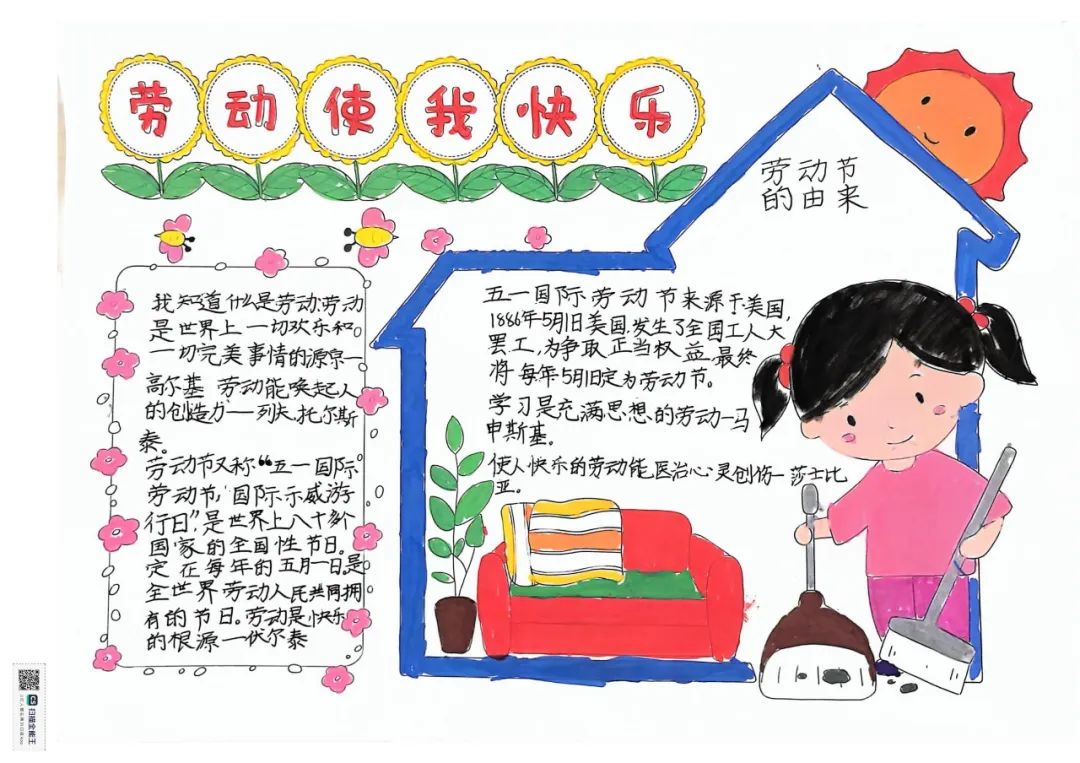 劳动使我快乐
劳动节
的由来
我知道什么是劳动:劳动
是世界上一切欢乐和
一切完美事情的源京一
高尔基 劳动能唤起人
的创造力——列夫.托尔斯
泰。
劳动节又称“五一国际
劳动节,国际示威游
行日”.是世界上八十多个
国家的全国性节日。
定在每年的五月一日.是
全世界劳动人民共同拥
有的节日。劳动是快乐
的根源一伏尔泰
五一国际劳动节来源于美国,
1886年5月1日美国.发生了全国工人大
罢工,为争取正当权益.最终
将每年5月1日定为劳动节。
学习是充满思想的劳动一马
申斯基。
使人快乐的劳动能医治心灵创伤一莎士比
亚。
扫描全能王